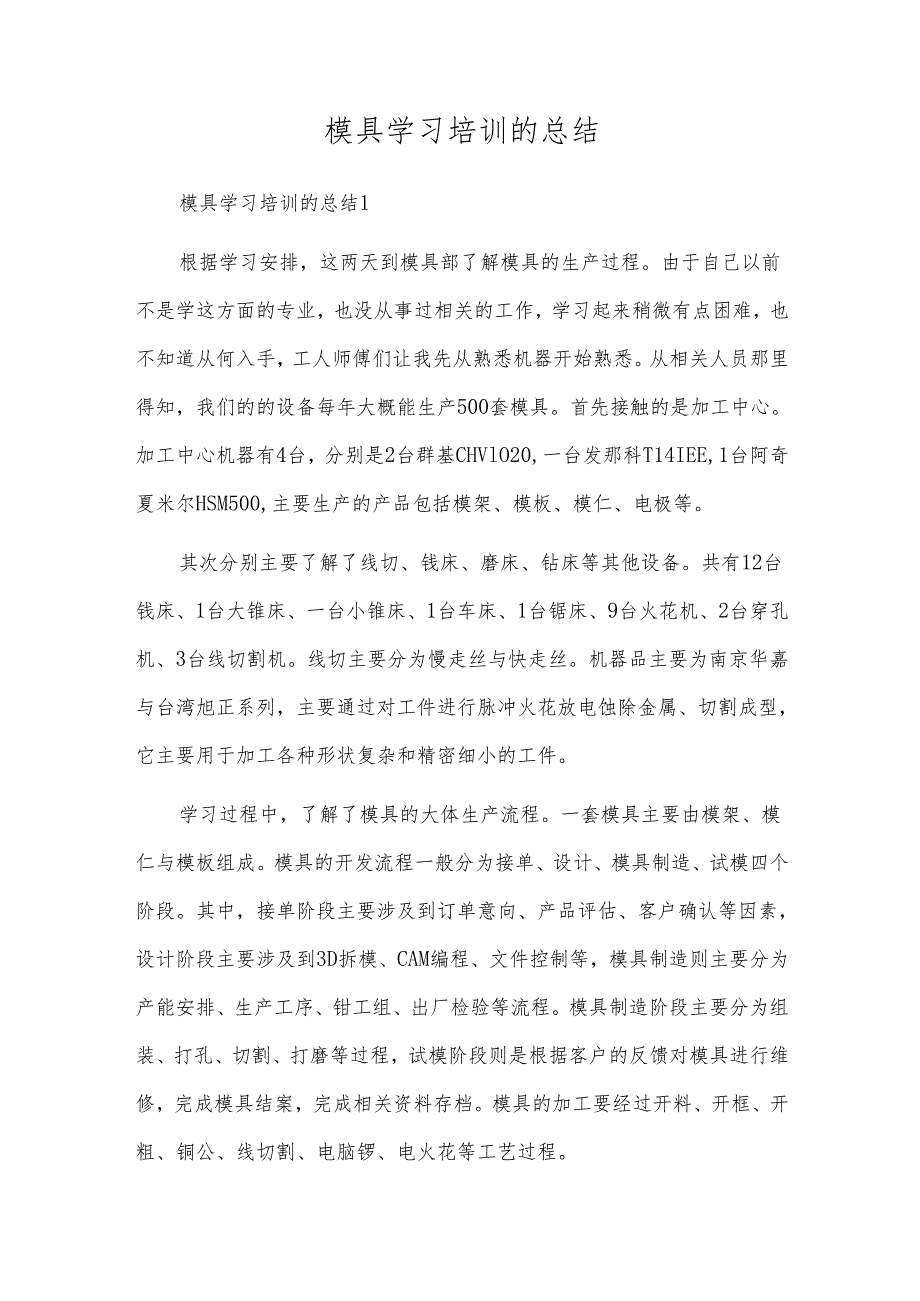 模具学习培训的总结
模具学习培训的总结1
根据学习安排，这两天到模具部了解模具的生产过程。由于自己以前
不是学这方面的专业，也没从事过相关的工作，学习起来稍微有点困难，也
不知道从何入手，工人师傅们让我先从熟悉机器开始熟悉。从相关人员那里
得知，我们的的设备每年大概能生产500套模具。首先接触的是加工中心。
加工中心机器有4台，分别是2台群基CHVlO20,一台发那科T14IEE,1台阿奇
夏米尔HSM500,主要生产的产品包括模架、模板、模仁、电极等。
其次分别主要了解了线切、钱床、磨床、钻床等其他设备。共有12台
钱床、1台大锥床、一台小锥床、1台车床、1台锯床、9台火花机、2台穿孔
机、3台线切割机。线切主要分为慢走丝与快走丝。机器品主要为南京华嘉
与台湾旭正系列，主要通过对工件进行脉冲火花放电蚀除金属、切割成型，
它主要用于加工各种形状复杂和精密细小的工件。
学习过程中，了解了模具的大体生产流程。一套模具主要由模架、模
仁与模板组成。模具的开发流程一般分为接单、设计、模具制造、试模四个
阶段。其中，接单阶段主要涉及到订单意向、产品评估、客户确认等因素，
设计阶段主要涉及到3D拆模、CAM编程、文件控制等，模具制造则主要分为
产能安排、生产工序、钳工组、出厂检验等流程。模具制造阶段主要分为组
装、打孔、切割、打磨等过程，试模阶段则是根据客户的反馈对模具进行维
修，完成模具结案，完成相关资料存档。模具的加工要经过开料、开框、开
粗、铜公、线切割、电脑锣、电火花等工艺过程。